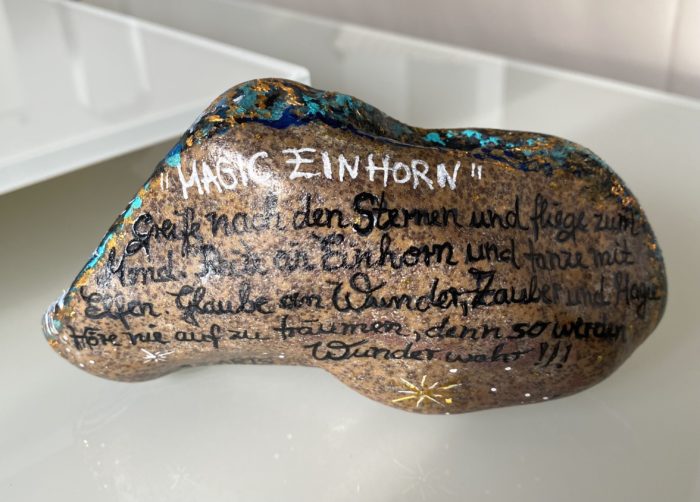 "MAGIC EINHORN"
Greife nach den Sternen und fliege zum
Mond. Reite ein Einhorn und tanze mit
Elfen. Glaube an Wunder, Zauber und Magie
Höre nie auf zu träumen, denn so werden
Wunder wahr!!!